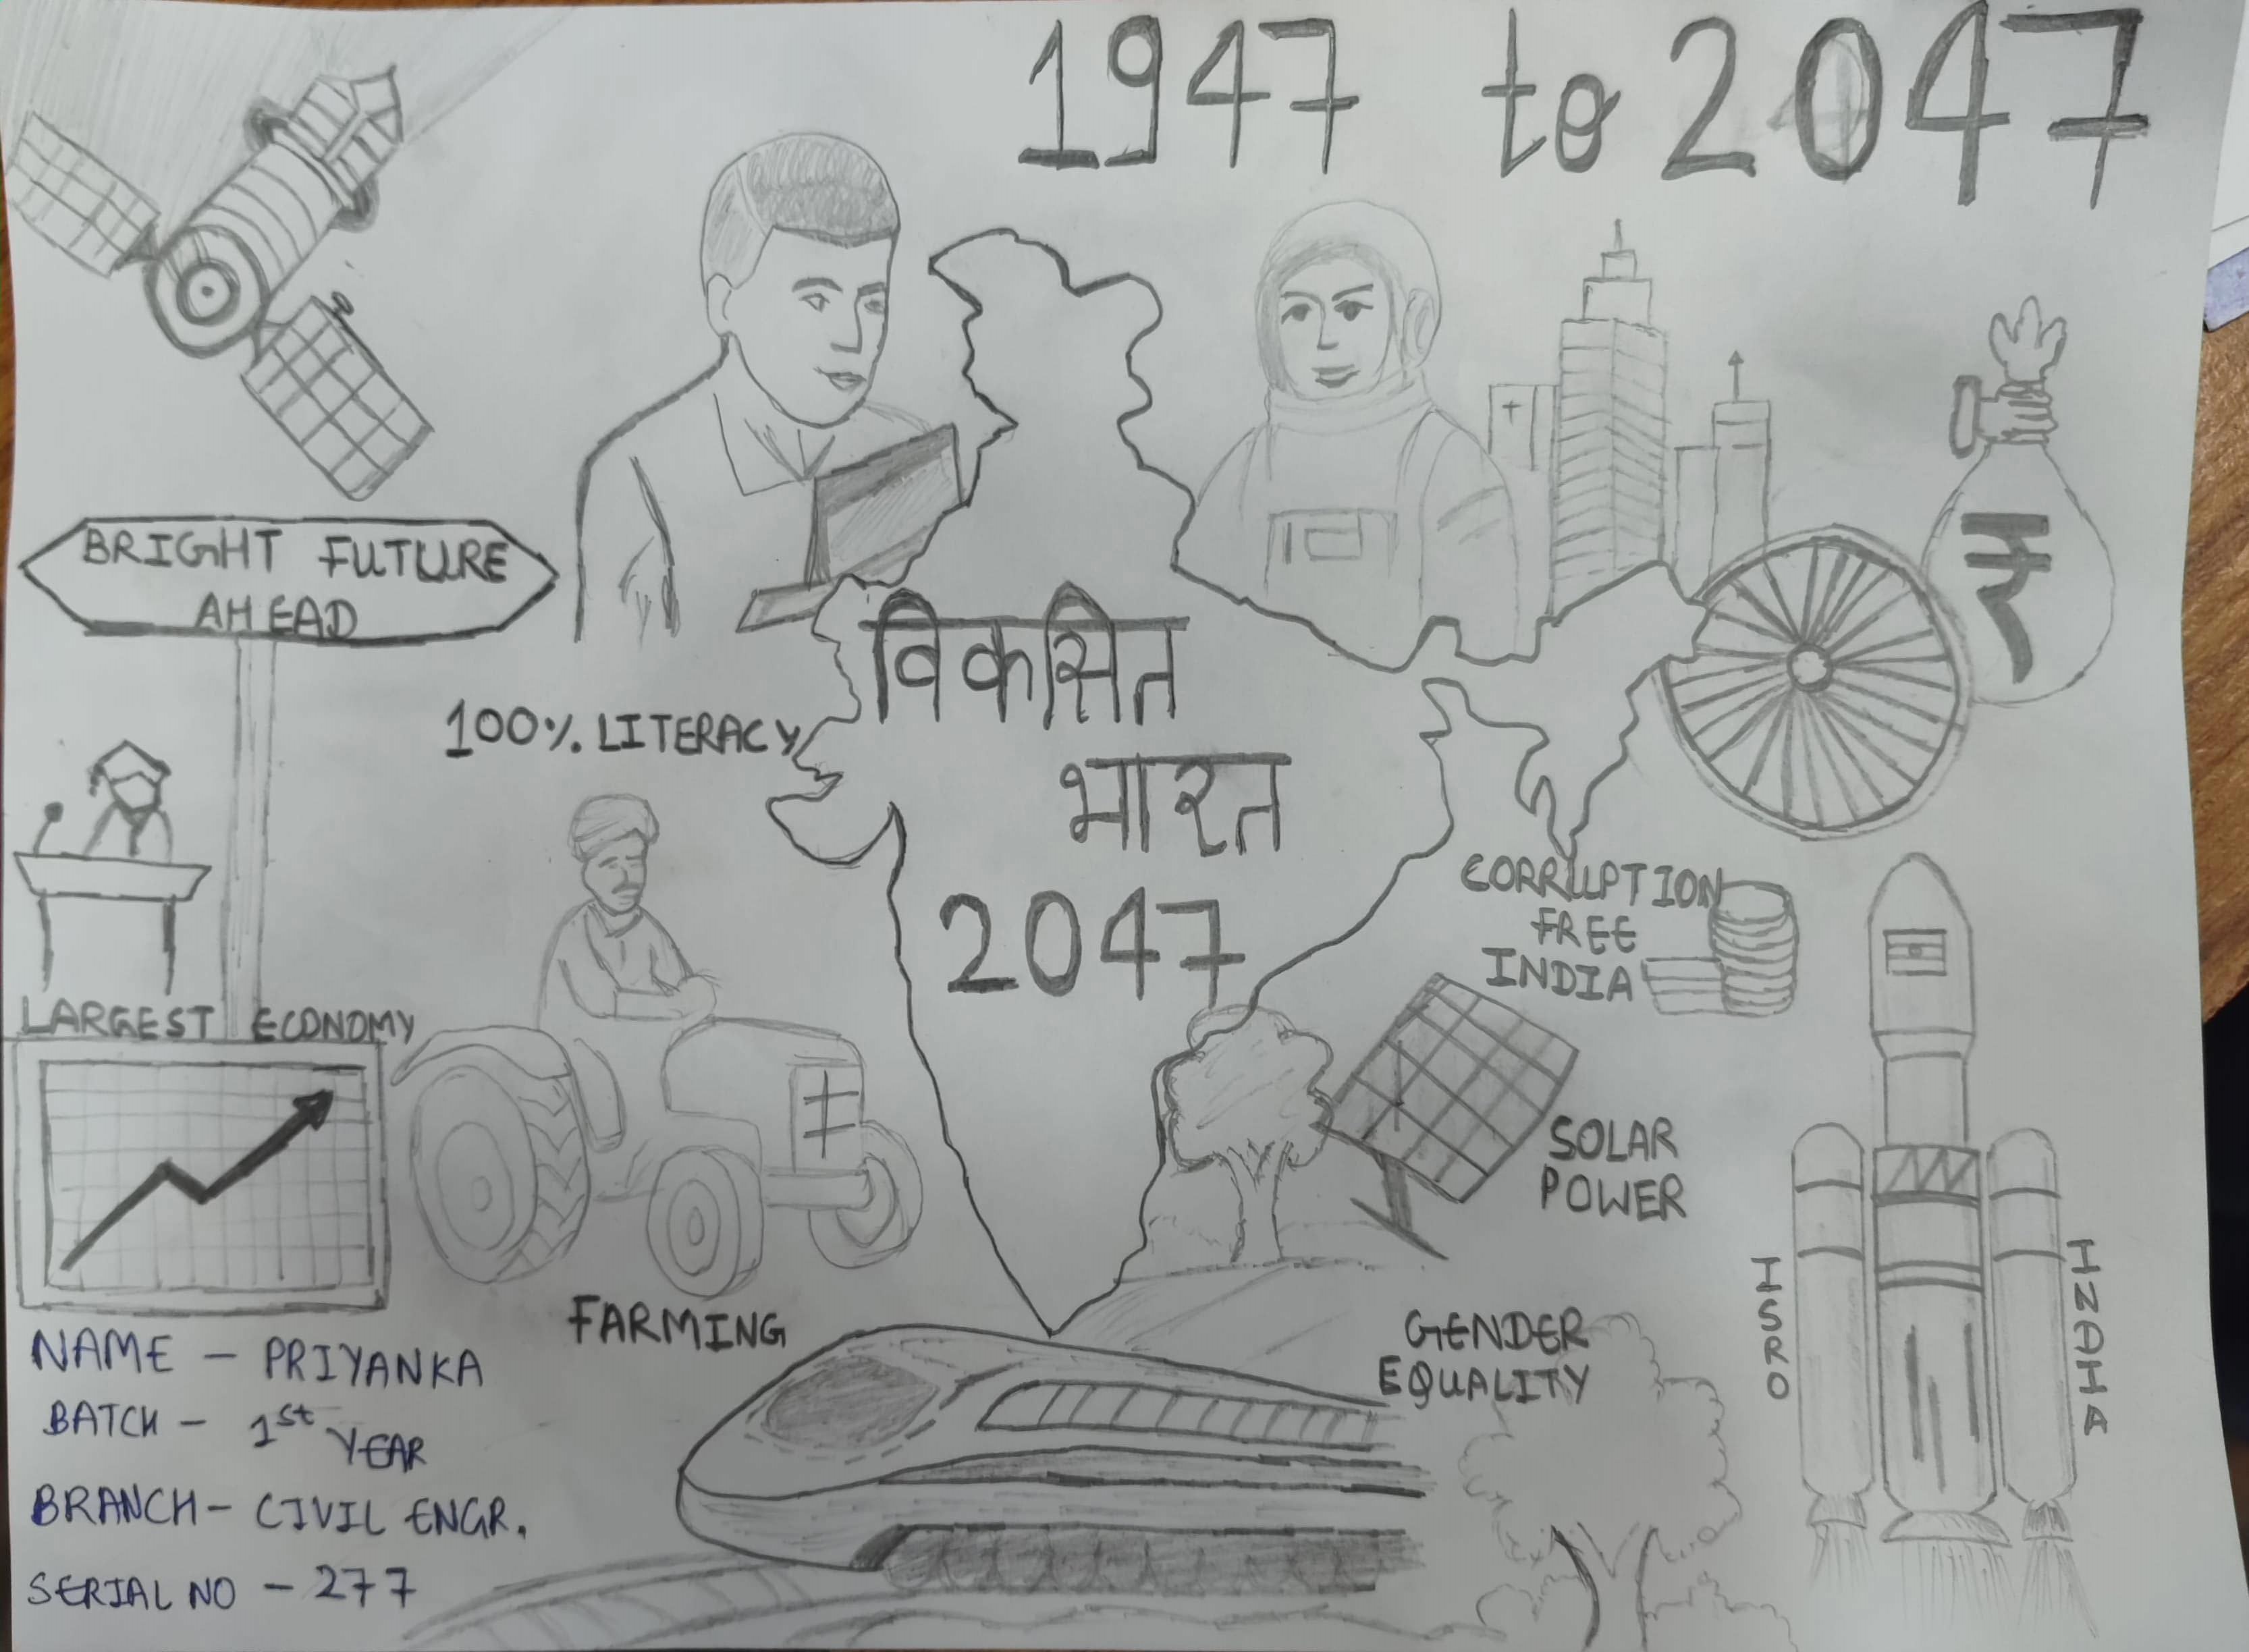 1947 to 2047
BRIGHT FUTURE
AHEAD
₹
विकसित
भारत
2047
100% LITERACY
CORRUPTION
FREE
INDIA
LARGEST ECONOMY
SOLAR
POWER
FARMING
GENDER
EQUALITY
ISRO
INDIA
NAME - PRIYANKA
BATCH - 1st YEAR
BRANCH - CIVIL ENGR.
SERIAL NO - 277